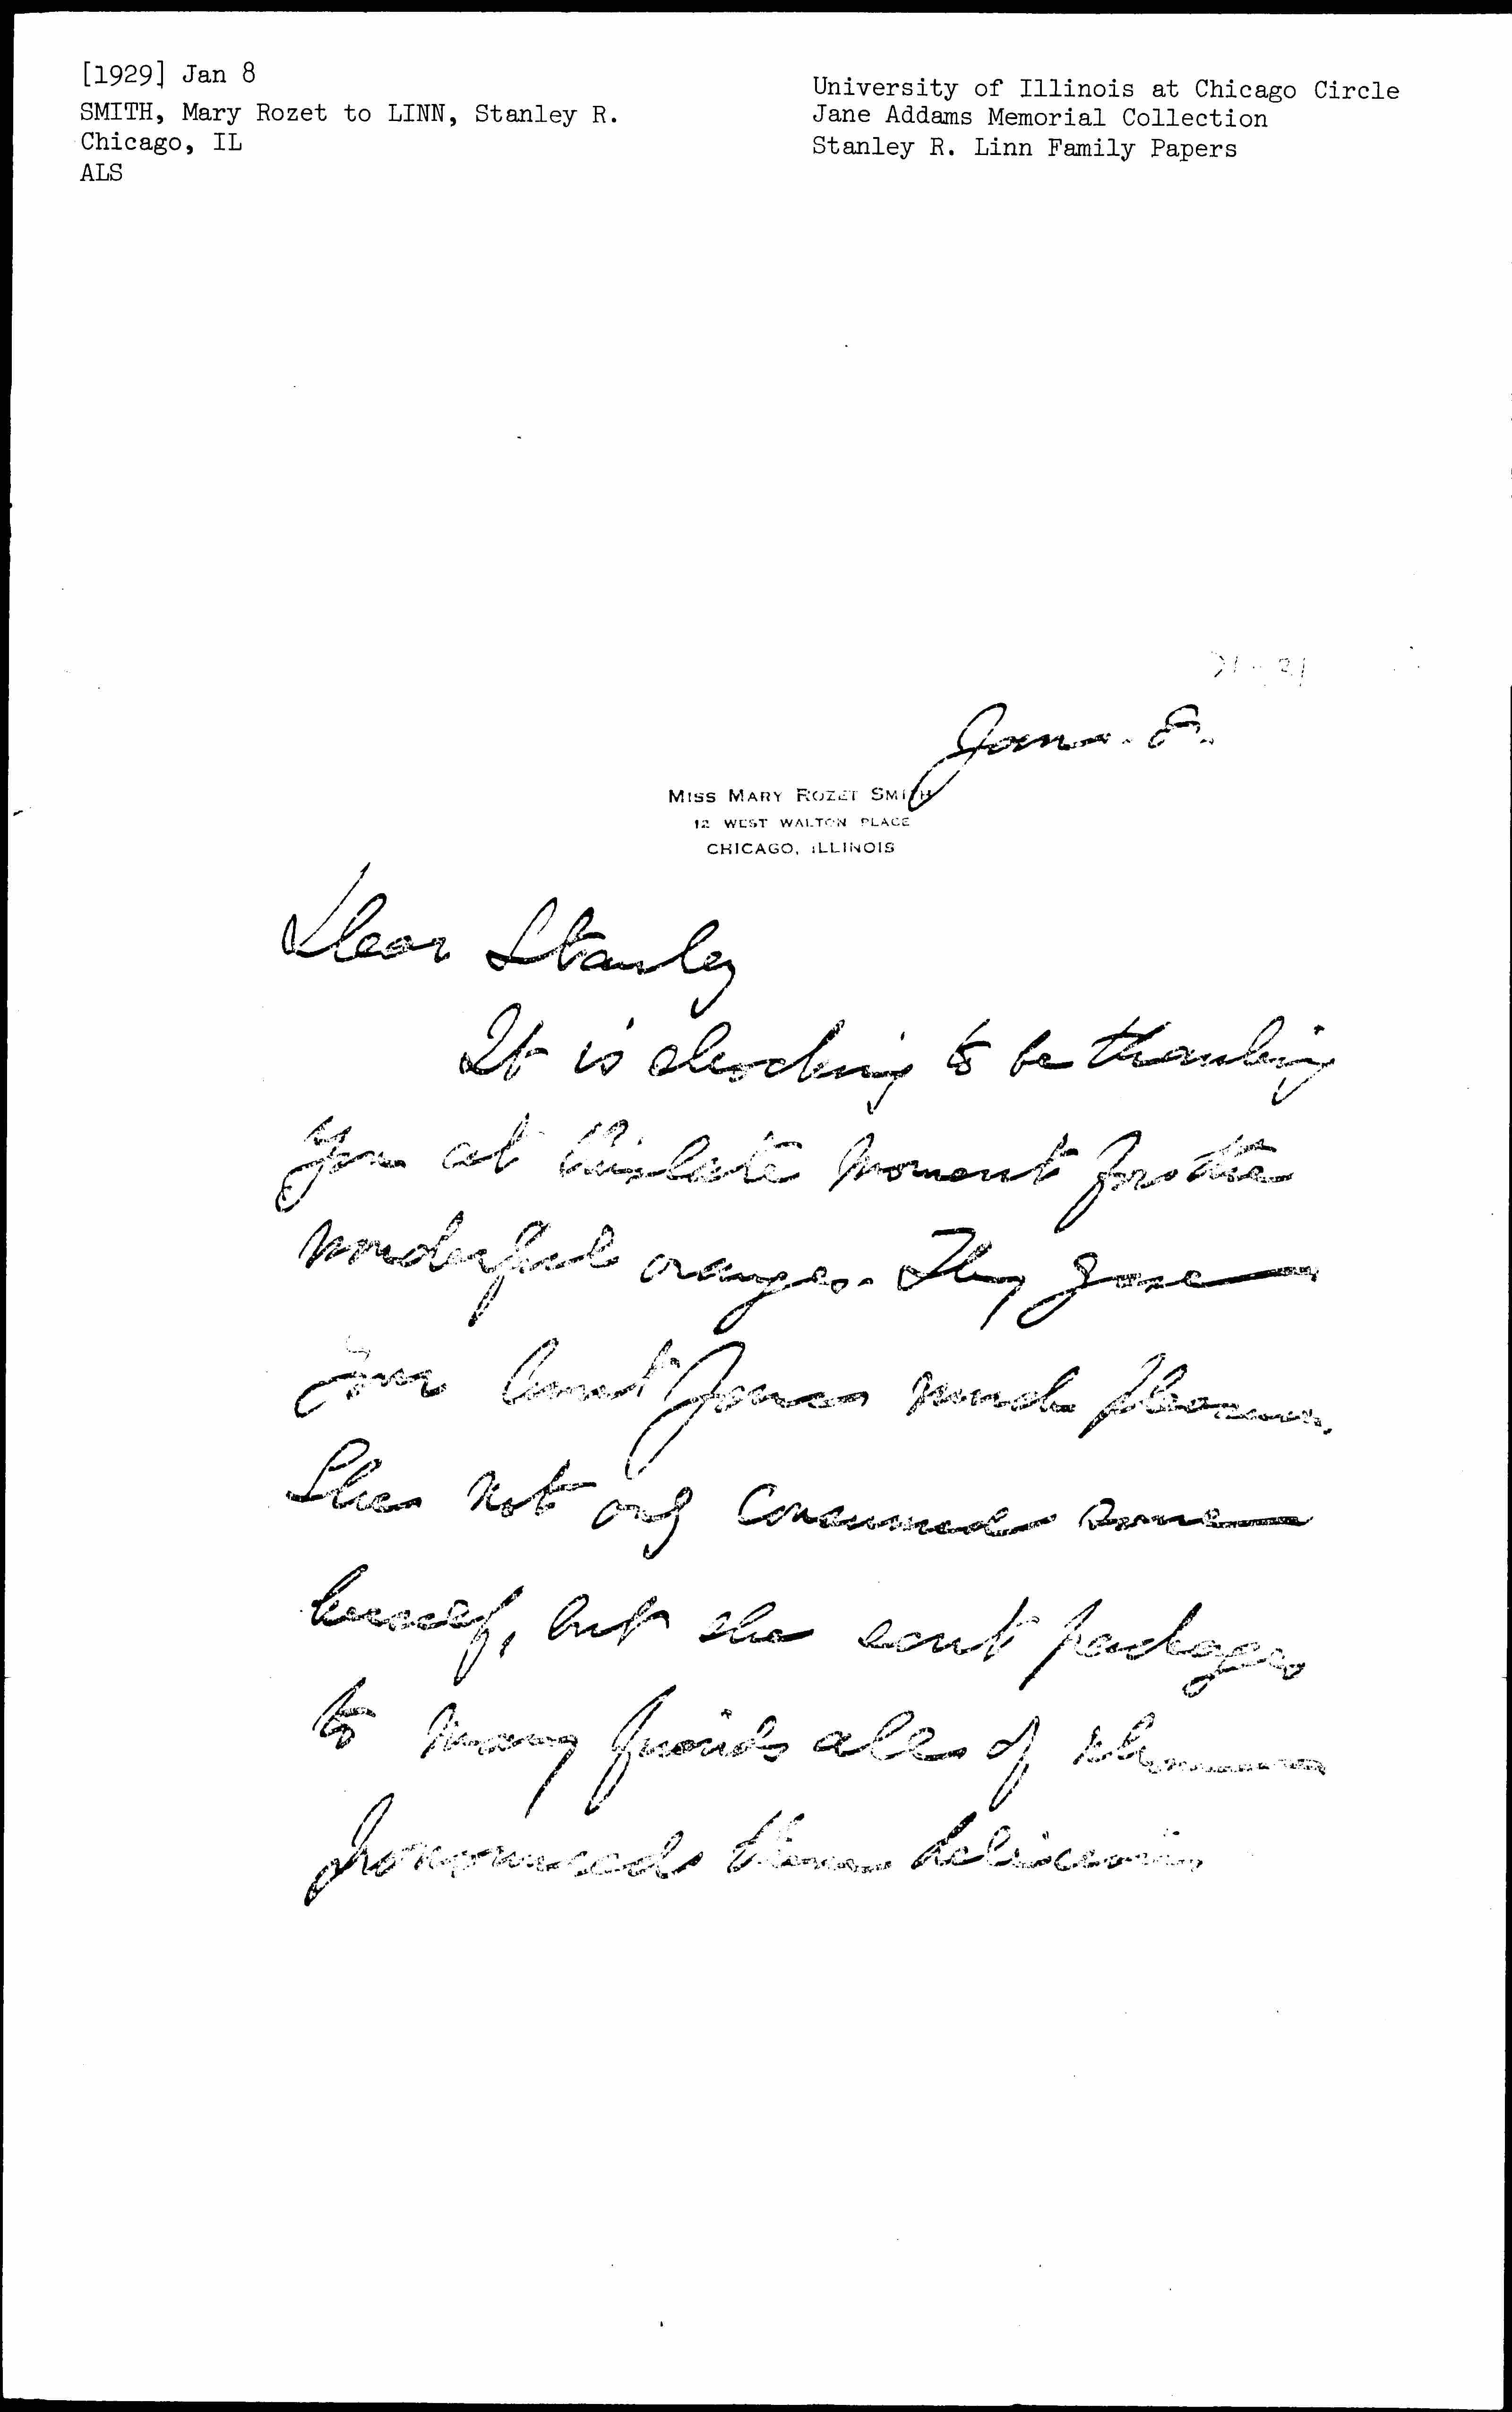 [1929] Jan 8
SMITH, Mary Rozet to LINN, Stanley R.
Chicago, IL
ALS
University of Illinois at Chicago Circle
Jane Addams Memorial Collection
Stanley R. Linn Family Papers
Jan. 8.
MISS MARY ROZET SMITH
12 WEST WALTON PLACE
CHICAGO, ILLINOIS
Dear Stanley
It is shocking to be thanking
you at this late moment for the
wonderful oranges. They gave
your Aunt Jane much pleasure.
She not only consumed some
herself, but she sent packages
to many friends all of whom
pronounced them delicious